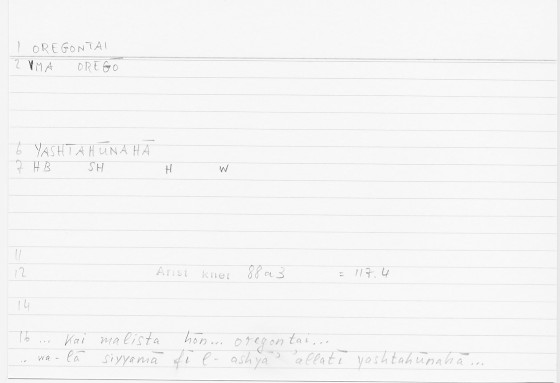 1 OREGONTAI
2 VMA OREGO
6 YASHTAHŪNAHĀ
7 HB SH H W
11
12 Arist Rhet 88a3 = 117.4
14
16 ... kai malista hōn... oregontai...
wa-lā siyyamā fī l-ashyāʾ ʾallatī yashtahūnahā...